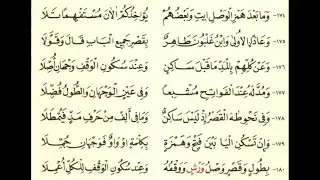 ١٧٤- وَمَا بَعْدَ هَمْزِ الْوَصْلِ ايتِ وَبَعْضُهُمْ يُؤَاخِذُكُمُ الآنَ مُسْتَفْهِمًا تَلَا
١٧٥- وَعَادًا الْأُولَى وَابْنُ غَلْبُونَ طَاهِرٌ بِقَصْرِ جَمِيعِ الْبَابِ قَالَ وَقَوَّلَا
١٧٦- وَعَنْ كُلِّهِمْ بِالْمَدِّ مَا قَبْلَ سَاكِنٍ وَعِنْدَ سُكُونِ الْوَقْفِ وَجْهَانِ أُصِّلَا
١٧٧- وَمُدَّ لَهُ عِنْدَ الْفَوَاتِحِ مُشْبِعًا وَفِي عَيْنٍ الْوَجْهَانِ وَالطُّولُ فُضِّلَا
١٧٨- وَفِي نَحْوِ طهَ الْقَصْرُ إِذْ لَيْسَ سَاكِنٌ وَمَا فِي أَلِفْ مِنْ حَرْفِ مَدٍّ فَيُمْطَلَا
١٧٩- وَإِنْ تَسْكُنِ الْيَا بَيْنَ فَتْحٍ وَهَمْزَةٍ بِكِلْمَةٍ اوْ وَاوٌ فَوَجْهَانِ جُمِّلَا
١٨٠- بِطُولٍ وَقَصْرٍ وَصْلُ وَرْشٍ وَوَقْفُهُ وَعِنْدَ سُكُونِ الْوَقْفِ لِلْكُلِّ أُعْمِلَا